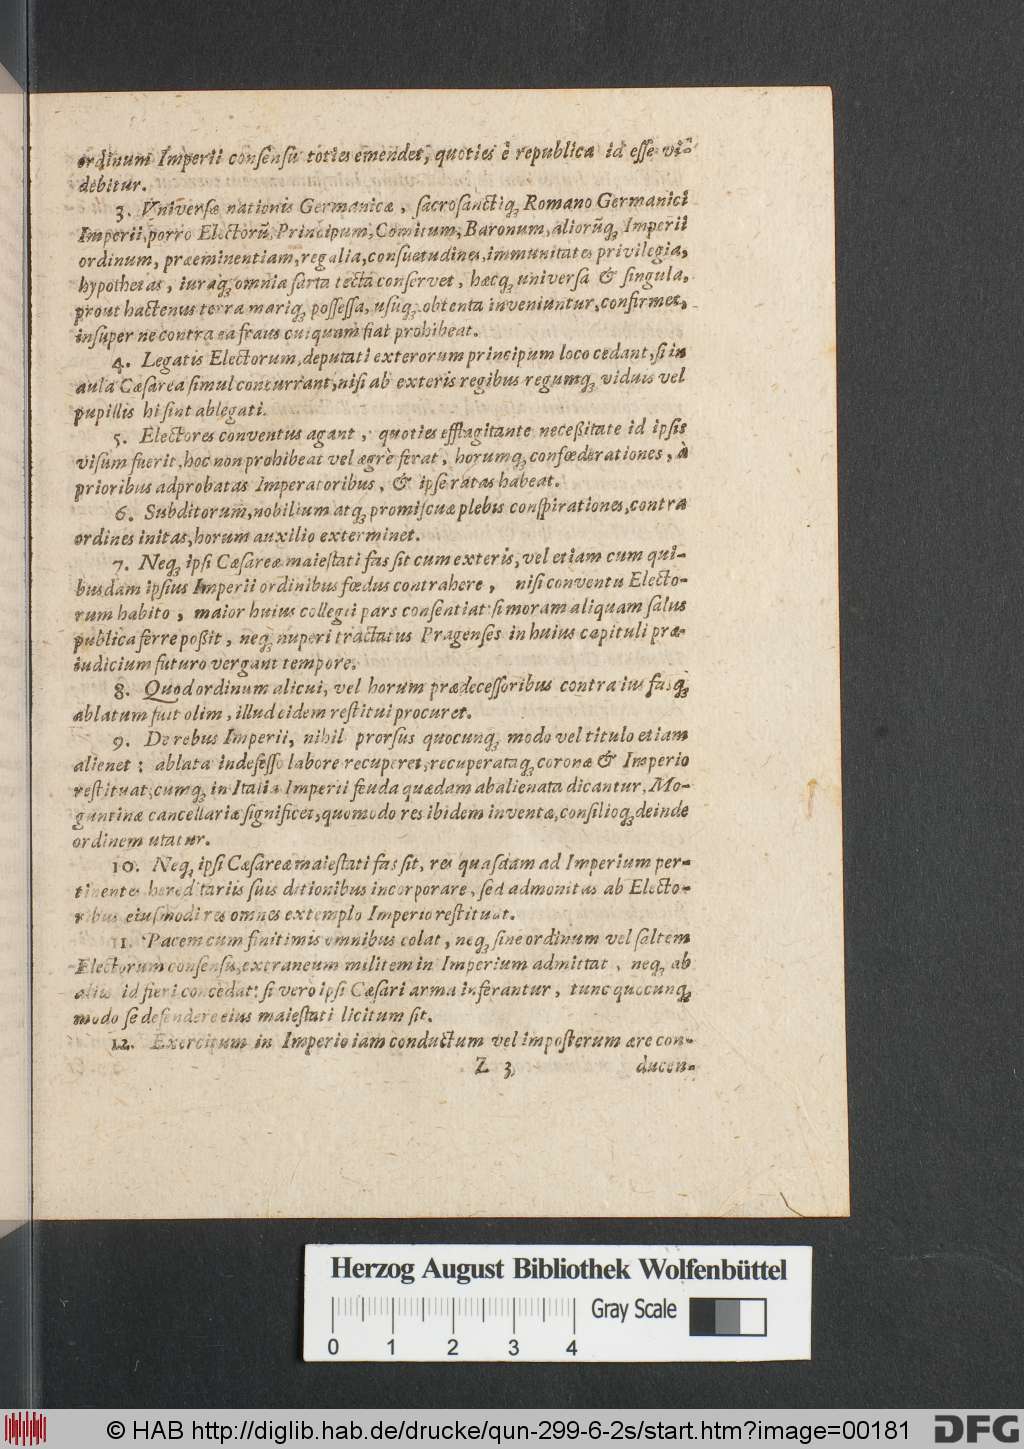 ordinum Imperii consensu toties emendet, quoties è republica id esse vi-
debitur.
3. Vniversæ nationis Germanicæ, sacrosanctiq́; Romano Germanici
Imperii, porro Electorũ, Principum, Comitum, Baronum, aliorũq́; Imperii
ordinum, præeminentiam, regalia, consuetudines, immunitates privilegia,
hypothecas, iuraq́; omnia sarta tecta conservet, hæcq́; universa & singula,
prout hactenus terra mariq́; possessa, usuq́; obtenta inveniuntur, confirmet,
insuper ne contra ea fraus cuiquam fiat prohibeat.
4. Legatis Electorum, deputati exterorum principum loco cedant, si in
aula Cæsarea simul concurrant, nisi ab exteris regibus regumq́; viduis vel
pupillis hi sint ablegati.
5. Electores conventus agant, quoties efflagitante neceßitate id ipsis
visum fuerit, hoc non prohibeat vel ægrè ferat, horumq́; confœderationes, à
prioribus adprobatas Imperatoribus, & ipse ratas habeat.
6. Subditorum, nobilium atq́; promiscuæ plebis conspirationes, contra
ordines initas, horum auxilio exterminet.
7. Neq́; ipsi Cæsareæ maiestati fas sit cum exteris, vel etiam cum qui-
busdam ipsius Imperii ordinibus fœdus contrahere, nisi conventu Electo-
rum habito, maior huius collegii pars consentiat: si moram aliquam salus
publica ferre poßit, neq́; nuperi tractatus Pragenses in huius capituli præ-
iudicium futuro vergant tempore.
8. Quod ordinum alicui, vel horum prædecessoribus contra ius fasq́;
ablatum fuit olim, illud eidem restitui procuret.
9. De rebus Imperii, nihil prorsus quocunq́; modo vel titulo etiam
alienet: ablata indefesso labore recuperet, recuperataq́; coronæ & Imperio
restituat, cumq́; in Italia Imperii feuda quædam abalienata dicantur, Mo-
guntinæ cancellariæ significet, quomodo res ibidem inventæ, consilioq́; deinde
ordinem utatur.
10. Neq́; ipsi Cæsareæ maiestati fas sit, res quasdam ad Imperium per-
tinentes hereditariis suis ditionibus incorporare, sed admonitas ab Electo-
ribus eiusmodi res omnes extemplo Imperio restituat.
11. Pacem cum finitimis omnibus colat, neq́; sine ordinum vel saltem
Electorum consensu, extraneum militem in Imperium admittat, neq́; ab
aliis id fieri concedat: si vero ipsi Cæsari arma inferantur, tunc quocunq́;
modo se defendere eius maiestati licitum sit.
12. Exercitum in Imperio iam conductum vel imposterum ære con-
Z 3 ducen-
Herzog August Bibliothek Wolfenbüttel
Gray Scale
0 1 2 3 4
© HAB http://diglib.hab.de/drucke/qun-299-6-2s/start.htm?image=00181
DFG